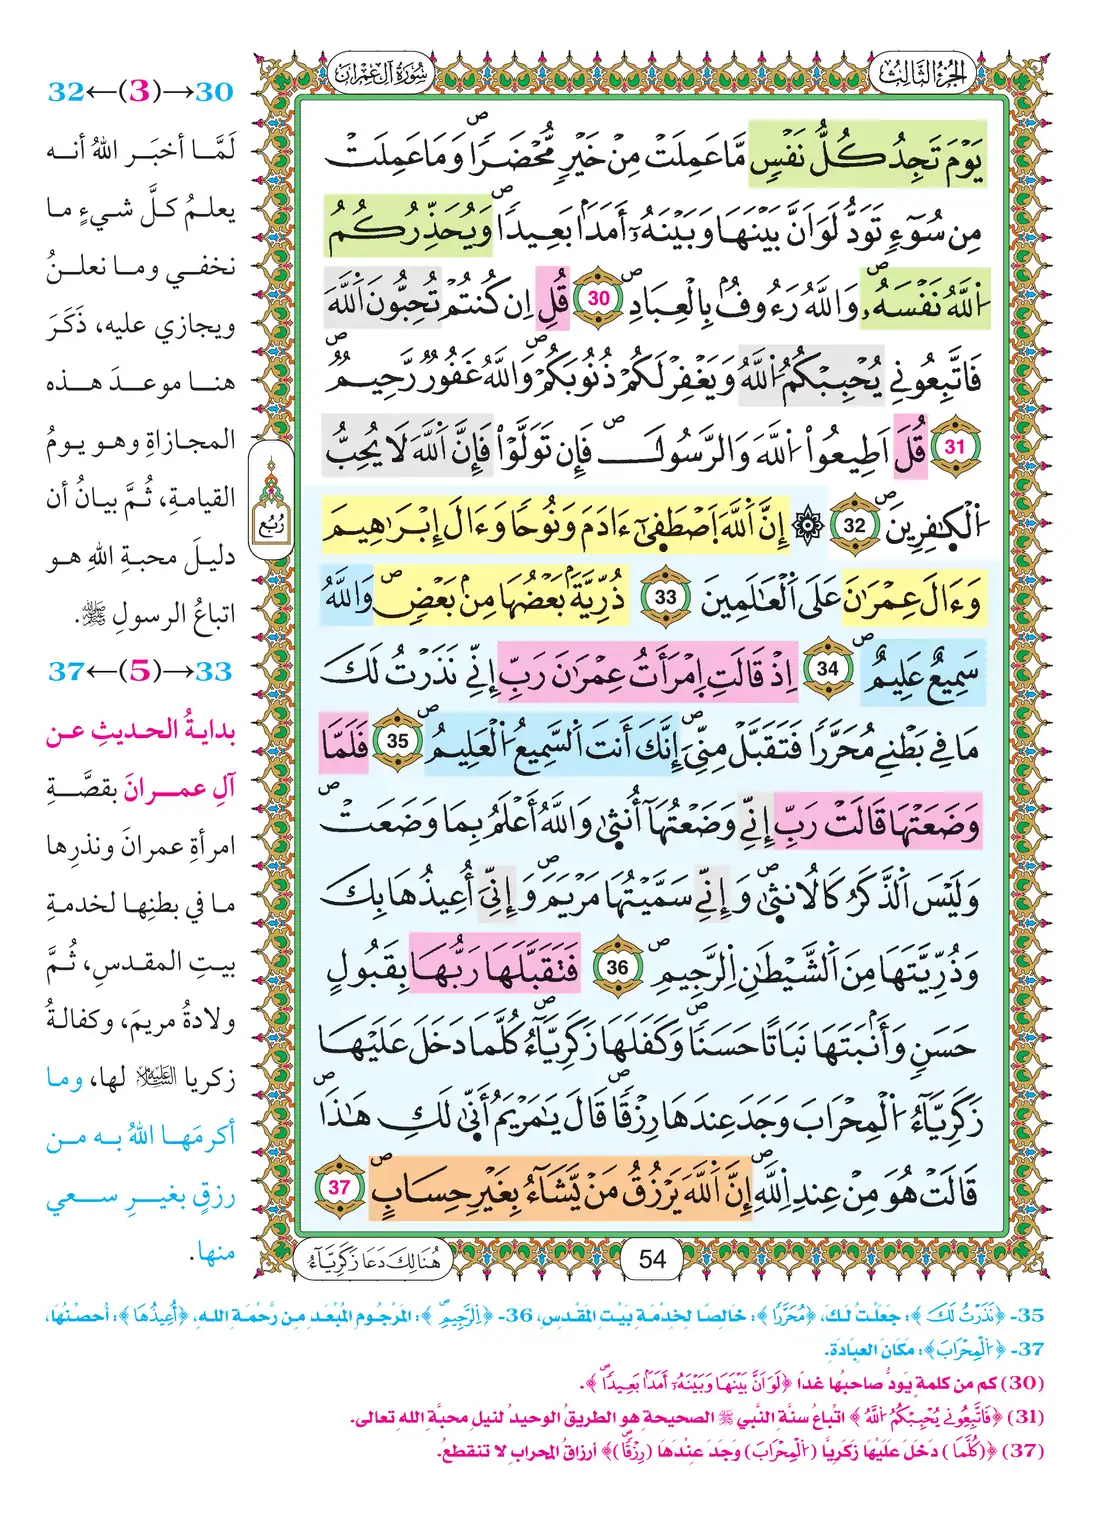 الجزء الثالث
سورة آل عمران
يَوْمَ تَجِدُ كُلُّ نَفْسٍ مَّا عَمِلَتْ مِنْ خَيْرٍ مُّحْضَرًا وَمَا عَمِلَتْ
مِن سُوٓءٍ تَوَدُّ لَوَ اَنَّ بَيْنَهَا وَبَيْنَهُۥٓ أَمَدًۢا بَعِيدًا وَيُحَذِّرُكُمُ
اُللَّهُ نَفْسَهُۥ وَاللَّهُ رَءُوفٌۢ بِالْعِبَادِ 30 قُلِ اِن كُنتُمْ تُحِبُّونَ اَللَّهَ
فَاتَّبِعُونِي يُحْبِبْكُمُ اُللَّهُ وَيَغْفِرْ لَكُمْ ذُنُوبَكُمْ وَاللَّهُ غَفُورٌ رَّحِيمٌ
31 قُلَ اَطِيعُواْ اُللَّهَ وَالرَّسُولَ فَإِن تَوَلَّوْاْ فَإِنَّ اَللَّهَ لَا يُحِبُّ
اُلْكَٰفِرِينَ 32 ۞ إِنَّ اَللَّهَ اَصْطَفَىٰٓ ءَادَمَ وَنُوحًا وَءَالَ إِبْرَٰهِيمَ
وَءَالَ عِمْرَٰنَ عَلَى اَلْعَٰلَمِينَ 33 ذُرِّيَّةَۢ بَعْضُهَا مِنۢ بَعْضٍ وَاللَّهُ
سَمِيعٌ عَلِيمٌ 34 اِذْ قَالَتِ اِمْرَأَتُ عِمْرَٰنَ رَبِّ إِنِّي نَذَرْتُ لَكَ
مَا فِي بَطْنِي مُحَرَّرًا فَتَقَبَّلْ مِنِّيَ إِنَّكَ أَنتَ اَلسَّمِيعُ اُلْعَلِيمُ 35 فَلَمَّا
وَضَعَتْهَا قَالَتْ رَبِّ إِنِّي وَضَعْتُهَآ أُنثَىٰ وَاللَّهُ أَعْلَمُ بِمَا وَضَعَتْ
وَلَيْسَ اَلذَّكَرُ كَالُانثَىٰ وَإِنِّي سَمَّيْتُهَا مَرْيَمَ وَإِنِّيَ أُعِيذُهَا بِكَ
وَذُرِّيَّتَهَا مِنَ اَلشَّيْطَٰنِ اِلرَّجِيمِ 36 فَتَقَبَّلَهَا رَبُّهَا بِقَبُولٍ
حَسَنٍ وَأَنۢبَتَهَا نَبَاتًا حَسَنًا وَكَفَلَهَا زَكَرِيَّآءُ كُلَّمَا دَخَلَ عَلَيْهَا
زَكَرِيَّآءُ اُلْمِحْرَابَ وَجَدَ عِندَهَا رِزْقًا قَالَ يَٰمَرْيَمُ أَنَّىٰ لَكِ هَٰذَا
قَالَتْ هُوَ مِنْ عِندِ اِللَّهِ إِنَّ اَللَّهَ يَرْزُقُ مَنْ يَّشَآءُ بِغَيْرِ حِسَابٍ 37
54
هُنَالِكَ دَعَا زَكَرِيَّآءُ
رُبُع
30→(3)←32
لَمَّا أخبَر اللهُ أنه
يعلمُ كلَّ شيءٍ ما
نخفي وما نعلنُ
ويجازي عليه، ذَكَرَ
هنا موعدَ هذه
المجازاةِ وهو يومُ
القيامةِ، ثُمَّ بيانُ أن
دليلَ محبةِ اللهِ هو
اتباعُ الرسولِ ﷺ.
33→(5)←37
بدايةُ الحديثِ عن
آلِ عمرانَ بقصَّةِ
امرأةِ عمرانَ ونذرِها
ما في بطنِها لخدمةِ
بيتِ المقدسِ، ثُمَّ
ولادةُ مريمَ، وكفالةُ
زكريا عليه السلام لها، وما
أكرمَها اللهُ به من
رزقٍ بغيرِ سعي
منها.
35- ﴿نَذَرْتُ لَكَ﴾: جَعَلْتُ لَكَ، ﴿مُحَرَّرًا﴾: خَالِصًا لِخِدْمَةِ بَيْتِ المَقْدِسِ، 36- ﴿اِلرَّجِيمِ﴾: المَرْجُومِ المُبْعَدِ مِن رَّحْمَةِ اللهِ، ﴿أُعِيذُهَا﴾: أُحصِّنُهَا،
37- ﴿اُلْمِحْرَابَ﴾: مَكَانَ العِبَادَةِ.
(30) كم من كلمةٍ يَودُّ صاحبُها غدًا ﴿لَوَ اَنَّ بَيْنَهَا وَبَيْنَهُۥٓ أَمَدًۢا بَعِيدًا﴾.
(31) ﴿فَاتَّبِعُونِي يُحْبِبْكُمُ اُللَّهُ﴾ اتِّباعُ سنَّةِ النَّبي ﷺ الصحيحةِ هو الطريقُ الوحيدُ لنيلِ محبَّةِ اللهِ تعالى.
(37) ﴿(كُلَّمَا) دَخَلَ عَلَيْهَا زَكَرِيَّا (اُلْمِحْرَابَ) وَجَدَ عِنْدَهَا (رِزْقًا)﴾ أرزاقُ المحرابِ لا تنقطعُ.